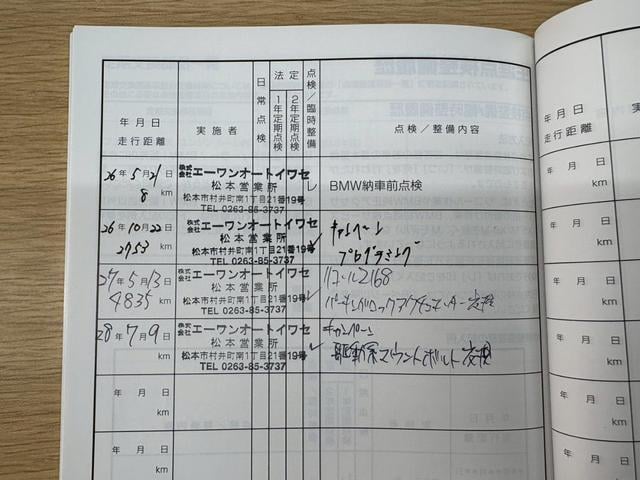 年月日
走行距離
実施者
日常点検
法定
1年定期点検
2年定期点検
点検／臨時整備
点検／整備内容
26年5月21日
8 km
株式会社エーワンオートイワセ
松本営業所
松本市村井町南1丁目21番19号
TEL 0263-85-3737
✓
BMW納車前点検
26年10月22日
2753 km
株式会社エーワンオートイワセ
松本営業所
松本市村井町南1丁目21番19号
TEL 0263-85-3737
✓
キャンペーン
プログラミング
27年5月13日
4835 km
株式会社エーワンオートイワセ
松本営業所
松本市村井町南1丁目21番19号
TEL 0263-85-3737
✓
リコール2168
パーキングロックアクチュエーター交換
28年7月9日
km
株式会社エーワンオートイワセ
松本営業所
松本市村井町南1丁目21番19号
TEL 0263-85-3737
✓
キャンペーン
駆動系マウントボルト交換
年月日
km
年月日
km
年月日
走行距離
年月日
年月日
年月日
年月日
年月日
年月日